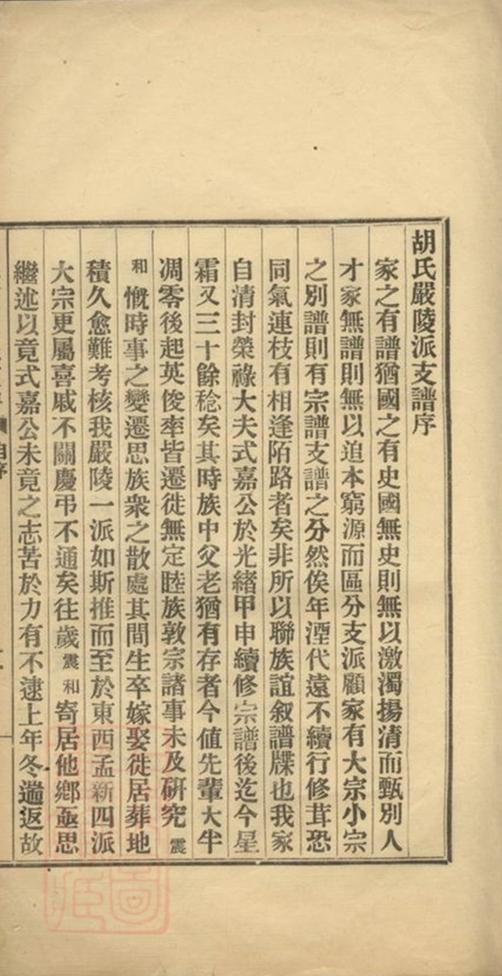 胡氏嚴陵派支譜序
家之有譜猶國之有史國無史則無以激濁揚清而甄別人
才家無譜則無以追本窮源而區分支派顧家有大宗小宗
之別譜則有宗譜支譜之分然俟年湮代遠不續行修葺恐
同氣連枝有相逢陌路者矣非所以聯族誼叙譜牒也我家
自清封榮祿大夫式嘉公於光緒甲申續修宗譜後迄今星
霜又三十餘稔矣其時族中父老猶有存者今値先輩大半
凋零後起英俊率皆遷徙無定睦族敦宗諸事未及研究震
和慨時事之變遷思族衆之散處其間生卒嫁娶徙居葬地
積久愈難考核我嚴陵一派如斯推而至於東西孟新四派
大宗更屬喜戚不關慶弔不通矣往歲震和寄居他鄉亟思
繼述以竟式嘉公未竟之志苦於力有不逮上年冬遄返故
自序